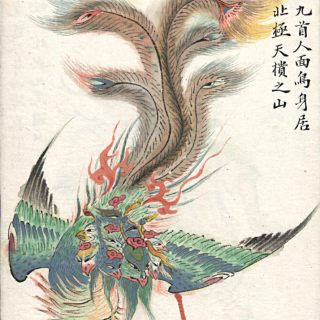 九首人面鳥身居
北極天樻之山